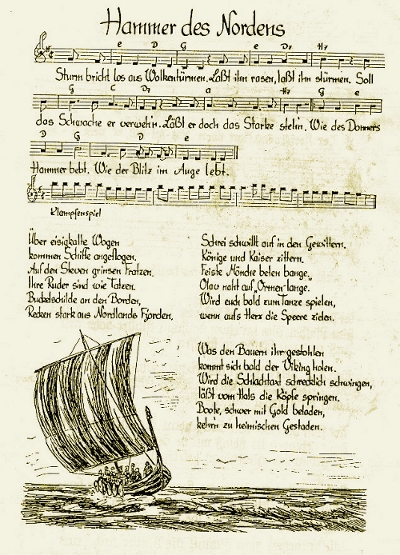 Hammer des Nordens
e D G e D7 H7
Sturm bricht los aus Wolkentürmen. Laßt ihn rasen, laßt ihn stürmen. Soll
G C D7 a H7 G e
das Schwache er verweh'n. Läßt er doch das Starke steh'n. Wie des Donners
D G D e
Hammer bebt. Wie der Blitz im Auge lebt.
Klampfenspiel
Über eisigkalte Wogen
kommen Schiffe angeflogen.
Auf den Steven grinsen Fratzen.
Ihre Ruder sind wie Tatzen.
Buckelschilde an den Borden,
Recken stark aus Nordlands Fjorden.
Schrei schwillt auf in den Gewittern.
Könige und Kaiser zittern.
Feiste Mönche beten bange.
Olav naht auf „Ormen-lange."
Wird euch bald zum tanze spielen,
wenn aufs Herz die Speere zielen.
Was den Bauern ihr gestohlen
kommt sich bald der Viking holen.
Wird die Schlachtaxt schrecklich schwingen,
läßt vom Hals die Köpfe springen.
Boote, schwer mit Gold beladen,
kehr'n zu heimischen Gestaden.